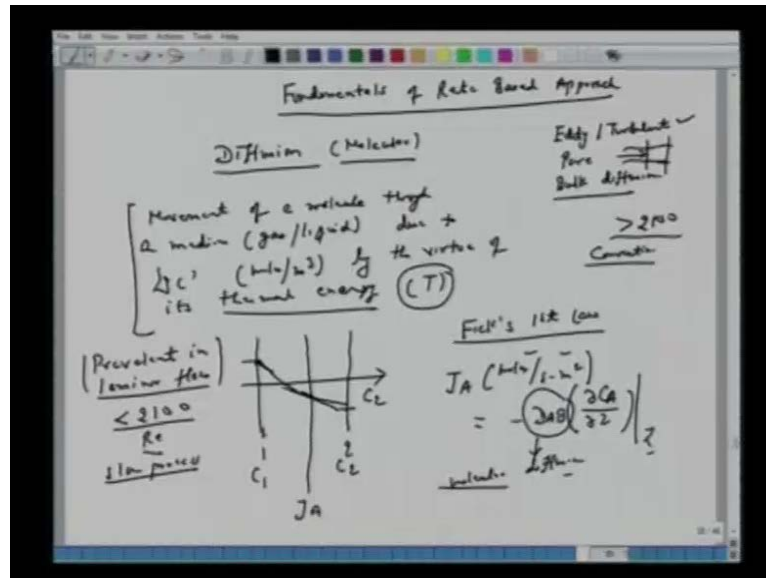 File Edit View Insert Actions Tools Help
Fundamentals of Rate Based Approach
Diffusion (Molecular)
Eddy / Turbulent
Pore
Bulk diffusion
> 2100
Convection
Movement of a molecule through
a medium (gas/liquid) due to
ΔC' (mole/m³) by the virtue of
its thermal energy (T)
(Prevalent in
laminar flow)
< 2100
Re
slow process
1
C1
2
C2
CZ
JA
Fick's 1st Law
JA (mole/s-m²)
= - DAB (∂CA/∂Z)|Z
molecular Diffusion